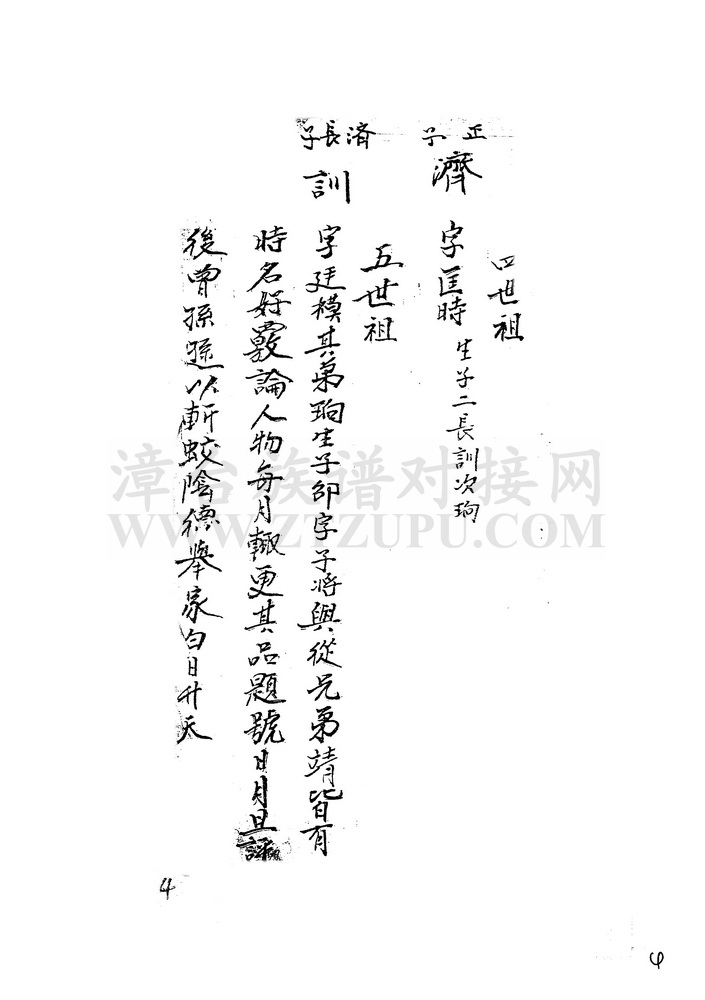 四世祖
正子
濟 字匡時 生子二長訓次珣
五世祖
済長子
訓 字廷模其弟珣生子邵字子將與從兄弟靖皆有
時名好覈論人物每月輒更其品題號曰月旦評
後曾孫遜以斬蛟陰德舉家白日升天
漳台族谱对接网
WWW.ZTZUPU.COM
4
4